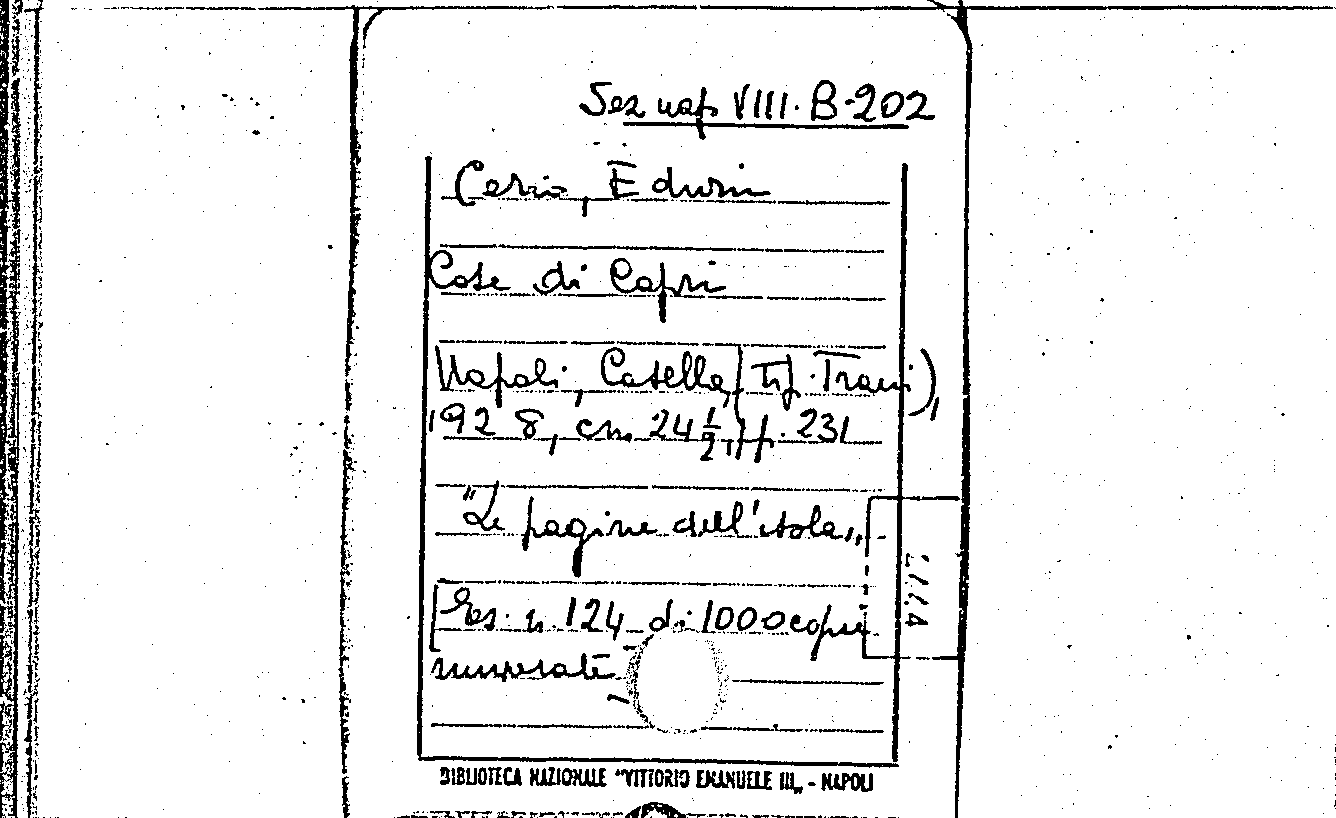 Sez nap VIII. B. 202
Cerio, Edwin
Cose di Capri
Napoli, Casella, (Tip. Trani),
1928, cm. 24 1/2, pp. 231
"Le pagine dell'isola„
[Es. n. 124 di 1000 copie
numerate
BIBLIOTECA NAZIONALE "VITTORIO EMANUELE III„ - NAPOLI